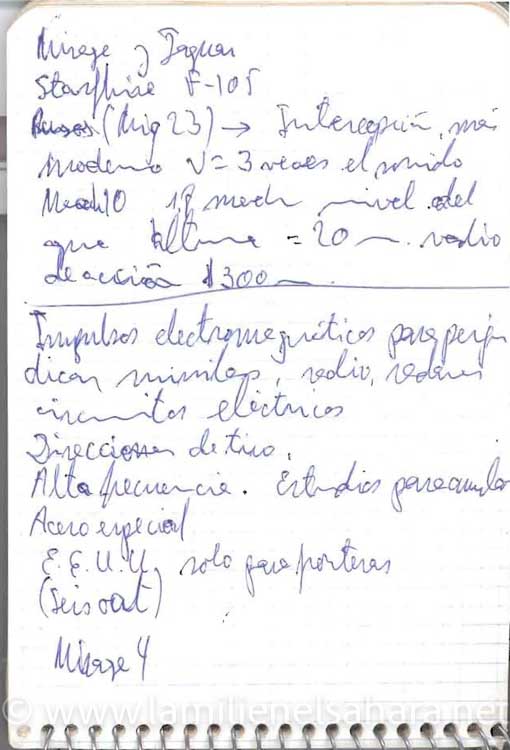 Mirage y Jaguar
Starfhire F-105
Rusos (Mig 23) → Intercepción, más
moderno V=3 veces el sonido
1,8 mach nivel del
que altura = 20 radio
de acción 1300
Impulsos electromagnéticos para perju
dicar misiles, radio, radares
circuitos eléctricos
Direcciones de tiro.
Alta frecuencia. Estudios para anular
Acero especial
E.E.U.U. solo para
Mirage 4
© www.lamilienelsahara.net